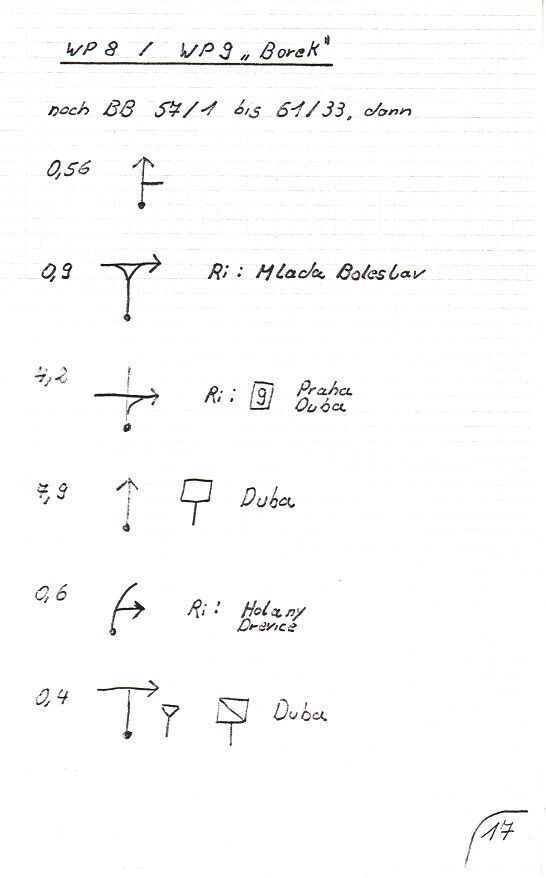 WP 8 / WP 9 „Borek"
nach BB 57/1 bis 61/33, dann
0,56
0,9 Ri: Mlada Boleslav
4,2 Ri: 9 Praha
Duba
7,9 Duba
0,6 Ri: Holany
Drevice
0,4 Duba
17